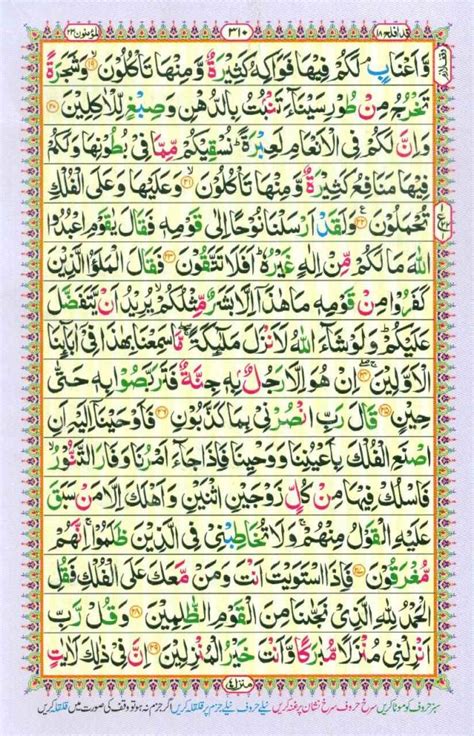 قد افلح ١٨
٣١٠
المؤمنون ٢٣
وَّاَعْنَابٍ ۘ لَكُمْ فِيْهَا فَوَاكِهُ كَثِيْرَةٌ وَّمِنْهَا تَاْكُلُوْنَ ۙ﴿١٩﴾ وَشَجَرَةً
تَخْرُجُ مِنْ طُوْرِ سَيْنَآءَ تَنْۢبُتُ بِالدُّهْنِ وَصِبْغٍ لِّلْاٰكِلِيْنَ ﴿٢٠﴾
وَاِنَّ لَكُمْ فِى الْاَنْعَامِ لَعِبْرَةً ؕ نُسْقِيْكُمْ مِّمَّا فِىْ بُطُوْنِهَا وَلَكُمْ
فِيْهَا مَنَافِعُ كَثِيْرَةٌ وَّمِنْهَا تَاْكُلُوْنَ ۙ﴿٢١﴾ وَعَلَيْهَا وَعَلَى الْفُلْكِ
تُحْمَلُوْنَ ﴿٢٢﴾ وَلَقَدْ اَرْسَلْنَا نُوْحًا اِلٰى قَوْمِهٖ فَقَالَ يٰقَوْمِ اعْبُدُوا
اللّٰهَ مَا لَكُمْ مِّنْ اِلٰهٍ غَيْرُهٗ ؕ اَفَلَا تَتَّقُوْنَ ﴿٢٣﴾ فَقَالَ الْمَلَؤُا الَّذِيْنَ
كَفَرُوْا مِنْ قَوْمِهٖ مَا هٰذَآ اِلَّا بَشَرٌ مِّثْلُكُمْ ۙ يُرِيْدُ اَنْ يَّتَفَضَّلَ
عَلَيْكُمْ ؕ وَلَوْ شَآءَ اللّٰهُ لَاَنْزَلَ مَلٰٓئِكَةً ۖۚ مَّا سَمِعْنَا بِهٰذَا فِىْٓ اٰبَآئِنَا
الْاَوَّلِيْنَ ۚ﴿٢٤﴾ اِنْ هُوَ اِلَّا رَجُلٌۢ بِهٖ جِنَّةٌ فَتَرَبَّصُوْا بِهٖ حَتّٰى
حِيْنٍ ﴿٢٥﴾ قَالَ رَبِّ انْصُرْنِىْ بِمَا كَذَّبُوْنِ ﴿٢٦﴾ فَاَوْحَيْنَآ اِلَيْهِ اَنِ
اصْنَعِ الْفُلْكَ بِاَعْيُنِنَا وَوَحْيِنَا فَاِذَا جَآءَ اَمْرُنَا وَفَارَ التَّنُّوْرُ ۙ
فَاسْلُكْ فِيْهَا مِنْ كُلٍّ زَوْجَيْنِ اثْنَيْنِ وَاَهْلَكَ اِلَّا مَنْ سَبَقَ
عَلَيْهِ الْقَوْلُ مِنْهُمْ ۚ وَلَا تُخَاطِبْنِىْ فِى الَّذِيْنَ ظَلَمُوْا ۚ اِنَّهُمْ
مُّغْرَقُوْنَ ﴿٢٧﴾ فَاِذَا اسْتَوَيْتَ اَنْتَ وَمَنْ مَّعَكَ عَلَى الْفُلْكِ فَقُلِ
الْحَمْدُ لِلّٰهِ الَّذِىْ نَجّٰنَا مِنَ الْقَوْمِ الظّٰلِمِيْنَ ﴿٢٨﴾ وَقُلْ رَّبِّ
اَنْزِلْنِىْ مُنْزَلًا مُّبٰرَكًا وَّاَنْتَ خَيْرُ الْمُنْزِلِيْنَ ﴿٢٩﴾ اِنَّ فِىْ ذٰلِكَ لَاٰيٰتٍ
منزل ٤
سبز حروف کو موٹا کریں سرخ حروف سرخ نشان پر غنہ کریں نیلے حروف نیلے جزم پر قلقلہ کریں اگر جزم نہ ہو تو وقف کی صورت میں قلقلہ کریں